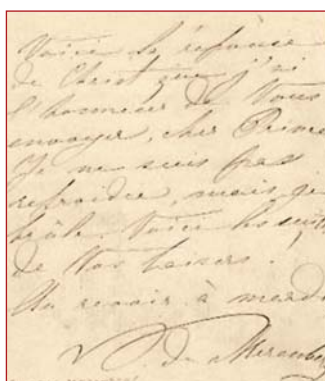 Voici la réponse
de Christ que j'ai
l'honneur de Vous
envoyer, cher Prince
Je ne suis pas
refroidie, mais je
brûle. Voici
de Vos baisers.
Au revoir à
de Merenberg